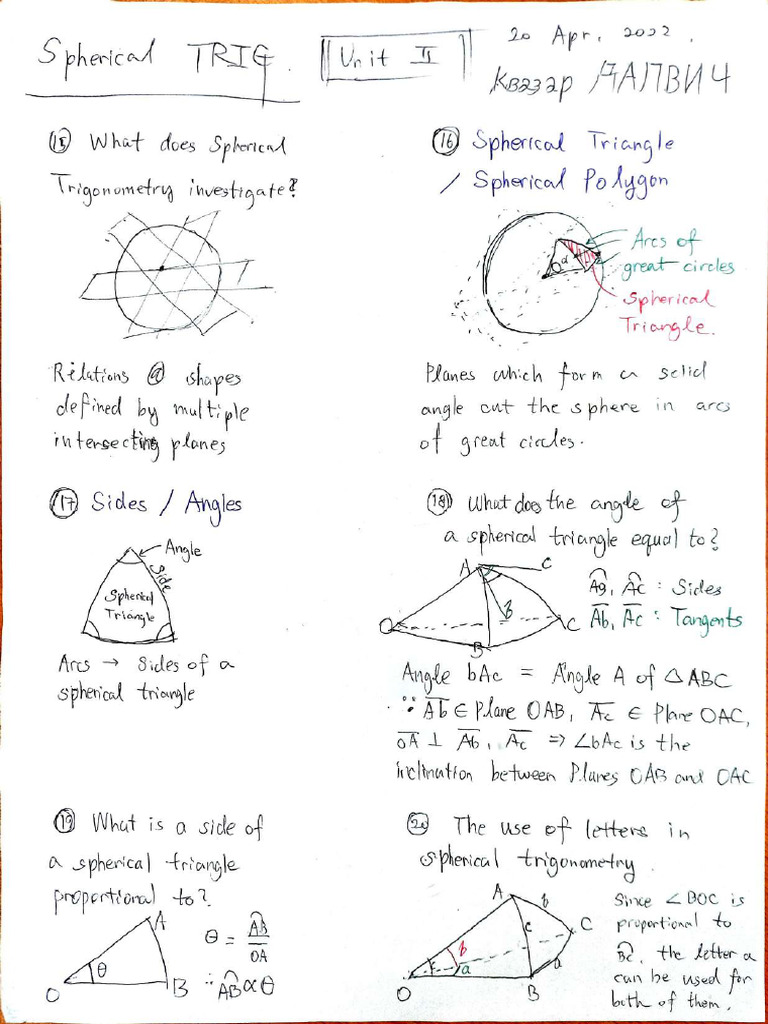 Spherical TRIG.
Unit II
20 Apr. 2022.
Квазар ДАПВИЧ
⑮ What does Spherical
Trigonometry investigate?
Relations @ shapes
defined by multiple
intersecting planes
⑯ Spherical Triangle
/ Spherical Polygon
α
Arcs of
great circles
Spherical
Triangle.
Planes which form a solid
angle cut the sphere in arcs
of great circles.
⑰ Sides / Angles
Angle
Side
Spherical
Triangle
Arcs → Sides of a
spherical triangle
⑱ What does the angle of
a spherical triangle equal to?
A c
b
O C
B
A͡B, A͡C : Sides
A̅b̅, A̅c̅ : Tangents
Angle bAc = Angle A of △ABC
∵ A̅b̅ ∈ Plane OAB, A̅c̅ ∈ Plane OAC,
O̅A̅ ⊥ A̅b̅, A̅c̅ ⇒ ∠bAc is the
inclination between Planes OAB and OAC
⑲ What is a side of
a spherical triangle
proportional to?
A
θ
O B
θ = A͡B / O̅A̅
∴ A͡B ∝ θ
⑳ The use of letters in
spherical trigonometry.
A b
b c C
c a a
O B
Since ∠BOC is
proportional to
B͡C, the letter a
can be used for
both of them.